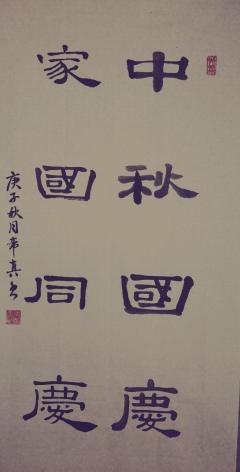 中秋國慶
家國同慶
庚子秋月常真书